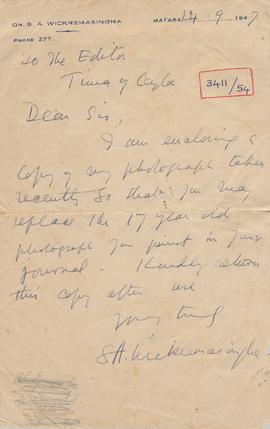 DR. S. A. WICKREMASINGHA
PHONE 277.
MATARA, 14. 9 1947
To The Editor
Times of Ceylon
3411/54
Dear Sir,
I am enclosing a
copy of my photograph taken
recently so that you may
replace the 17 year old
photograph you print in your
journal - Kindly return
this copy after use
Yours truly
S.A. Wickremasingha